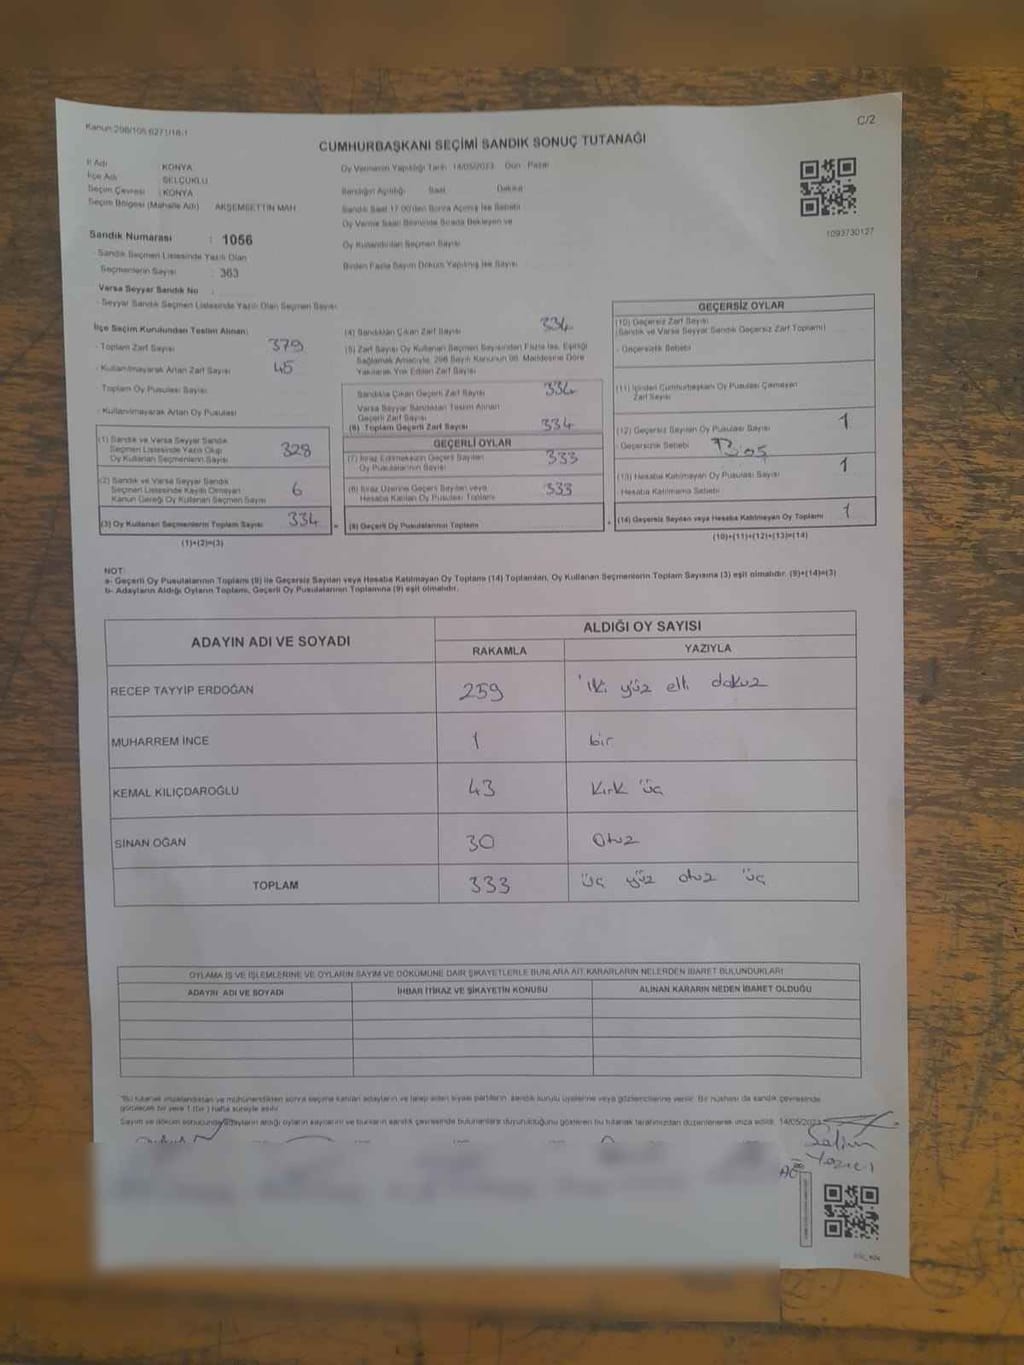 Kanun:298/105 6271/18-1
C/2
CUMHURBAŞKANI SEÇİMİ SANDIK SONUÇ TUTANAĞI
İl Adı : KONYA
İlçe Adı : SELÇUKLU
Seçim Çevresi : KONYA
Seçim Bölgesi (Mahalle Adı) AKŞEMSETTİN MAH.
Oy Vermenin Yapıldığı Tarih 14/05/2023 Gün Pazar
Sandığın Açıldığı Saat Dakika
Sandık Saat 17:00'den Sonra Açılmış İse Sebebi
Oy Verme Saati Bitiminde Sırada Bekleyen ve
Oy Kullandırılan Seçmen Sayısı
Birden Fazla Sayım Döküm Yapılmış İse Sayısı
1093730127
Sandık Numarası : 1056
- Sandık Seçmen Listesinde Yazılı Olan
Seçmenlerin Sayısı : 363
Varsa Seyyar Sandık No :
- Seyyar Sandık Seçmen Listesinde Yazılı Olan Seçmen Sayısı
İlçe Seçim Kurulundan Teslim Alınan:
- Toplam Zarf Sayısı 379
- Kullanılmayarak Artan Zarf Sayısı 45
Toplam Oy Pusulası Sayısı
- Kullanılmayarak Artan Oy Pusulası
(1) Sandık ve Varsa Seyyar Sandık
Seçmen Listesinde Yazılı Olup
Oy Kullanan Seçmenlerin Sayısı 328
(2) Sandık ve Varsa Seyyar Sandık
Seçmen Listesinde Kayıtlı Olmayan
Kanun Gereği Oy Kullanan Seçmen Sayısı 6
(3) Oy Kullanan Seçmenlerin Toplam Sayısı 334
(1)+(2)=(3)
(4) Sandıktan Çıkan Zarf Sayısı 334
(5) Zarf Sayısı Oy Kullanan Seçmen Sayısından Fazla İse, Eşitliği
Sağlamak Amacıyla, 298 Sayılı Kanunun 98. Maddesine Göre
Yakılarak Yok Edilen Zarf Sayısı
Sandıkta Çıkan Geçerli Zarf Sayısı 334
Varsa Seyyar Sandıktan Teslim Alınan
Geçerli Zarf Sayısı
(6) Toplam Geçerli Zarf Sayısı 334
GEÇERLİ OYLAR
(7) İtiraz Edilmeksizin Geçerli Sayılan
Oy Pusulalarının Sayısı 333
(8) İtiraz Üzerine Geçerli Sayılan veya
Hesaba Katılan Oy Pusulası Toplamı 333
(9) Geçerli Oy Pusulalarının Toplamı
GEÇERSİZ OYLAR
(10) Geçersiz Zarf Sayısı
(Sandık ve Varsa Seyyar Sandık Geçersiz Zarf Toplamı)
- Geçersizlik Sebebi
(11) İçinden Cumhurbaşkanı Oy Pusulası Çıkmayan
Zarf Sayısı
(12) Geçersiz Sayılan Oy Pusulası Sayısı 1
- Geçersizlik Sebebi
(13) Hesaba Katılmayan Oy Pusulası Sayısı 1
Hesaba Katılmama Sebebi
(14) Geçersiz Sayılan veya Hesaba Katılmayan Oy Toplamı 1
(10)+(11)+(12)+(13)=(14)
NOT:
a- Geçerli Oy Pusulalarının Toplamı (9) ile Geçersiz Sayılan veya Hesaba Katılmayan Oy Toplamı (14) Toplamları, Oy Kullanan Seçmenlerin Toplam Sayısına (3) eşit olmalıdır. (9)+(14)=(3)
b- Adayların Aldığı Oyların Toplamı, Geçerli Oy Pusulalarının Toplamına (9) eşit olmalıdır.
ADAYIN ADI VE SOYADI
ALDIĞI OY SAYISI
RAKAMLA YAZIYLA
RECEP TAYYİP ERDOĞAN 259 iki yüz elli dokuz
MUHARREM İNCE 1 bir
KEMAL KILIÇDAROĞLU 43 kırk üç
SİNAN OĞAN 30 Otuz
TOPLAM 333 üç yüz otuz üç
OYLAMA İŞ VE İŞLEMLERİNE VE OYLARIN SAYIM VE DÖKÜMÜNE DAİR ŞİKAYETLERLE BUNLARA AİT KARARLARIN NELERDEN İBARET BULUNDUKLARI
ADAYIN ADI VE SOYADI İHBAR İTİRAZ VE ŞİKAYETİN KONUSU ALINAN KARARIN NEDEN İBARET OLDUĞU
*Bu tutanak imzalandıktan ve mühürlendikten sonra seçime katılan adayların ve talep eden siyasi partilerin, sandık kurulu üyelerine veya gözlemcilerine verilir. Bir nüshası da sandık çevresinde
görülecek bir yere 1 (bir) hafta süreyle asılır.
Sayım ve döküm sonucunda adayların aldığı oyların sayılarını ve bunların sandık çevresinde bulunanlara duyurulduğunu gösteren bu tutanak tarafımızdan düzenlenerek imza edildi. 14/05/2023
Salim
Yazıcı